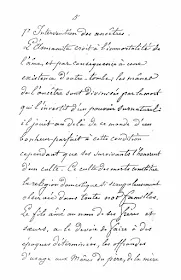 5
1° Intervention des ancêtres.
L'Annamite croit à l'immortalité de
l'âme, et par conséquence à une
existence d'outre-tombe; les mânes
de l'ancêtre sont divinisés par la mort
qui l'investit d'un pouvoir surnaturel:
il jouit au delà de ce monde d'un
bonheur parfait à cette condition
cependant que les survivants l'honorent
d'un culte. Le culte des morts constitue
la religion domestique et
observée dans toutes nos familles.
Le fils aîné au nom de ses frères et
sœurs, a le devoir de faire à des
époques déterminées, les offrandes
d'usage aux Mânes du père, de la mère